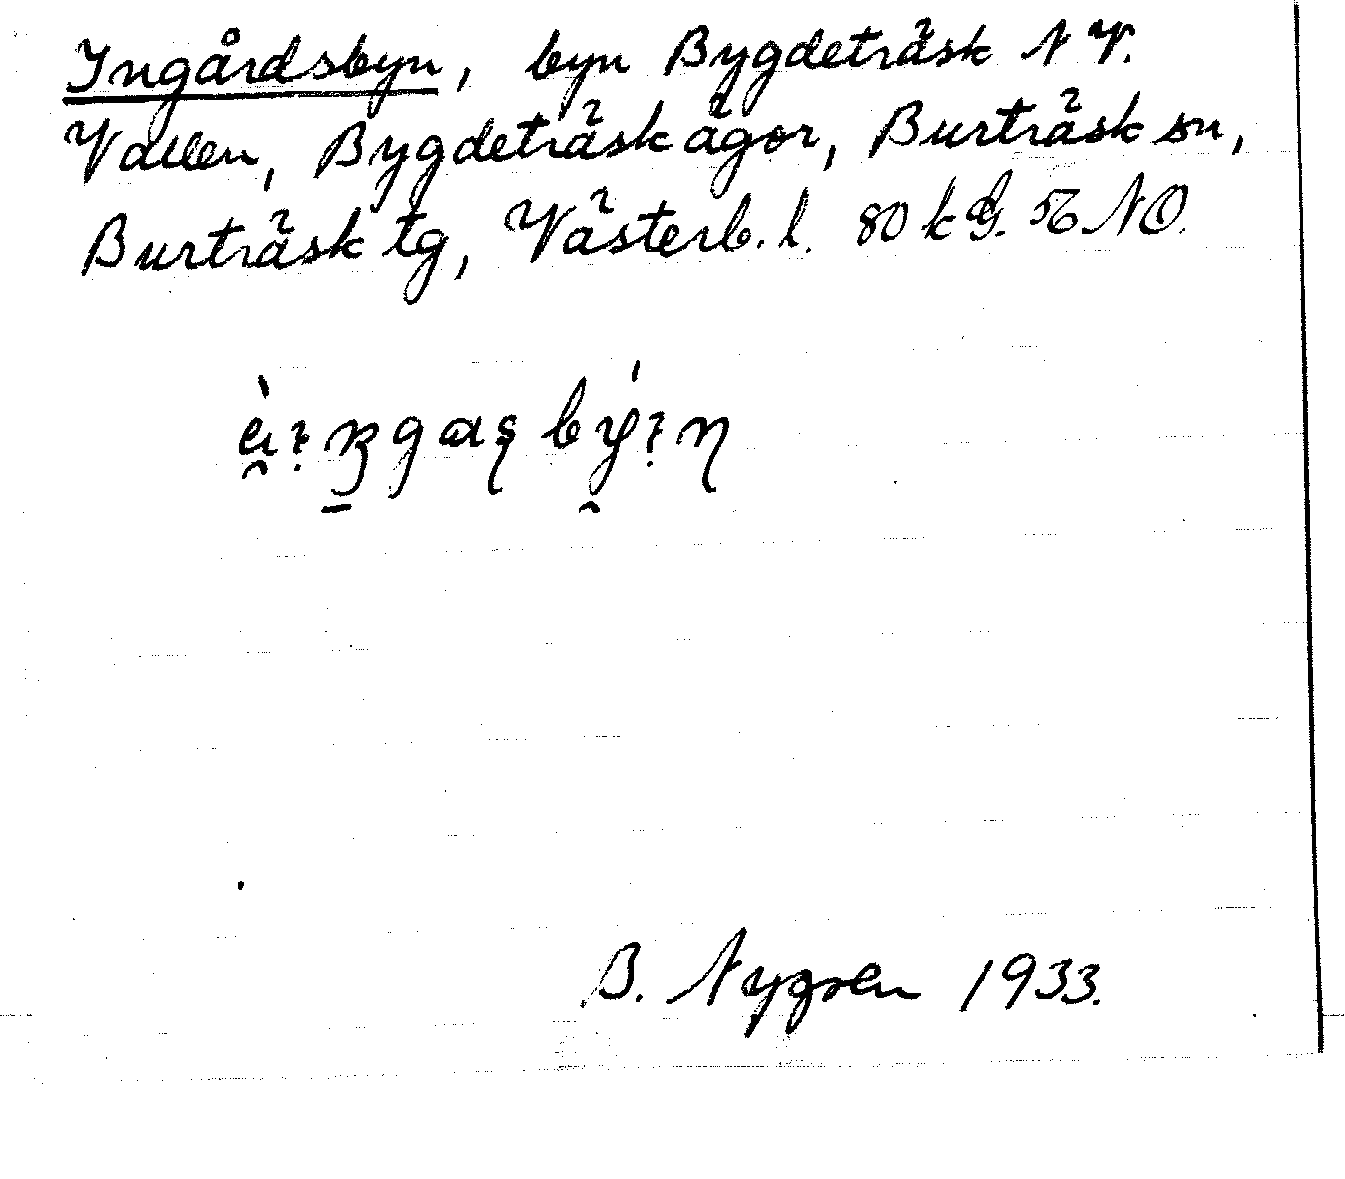 Ingårdsbyn, byn Bygdeträsk N V.
Vallen, Bygdeträsk ägor, Burträsk sn,
Burträsk tg, Västerb. l. 80 k G. 56 NO.
B. Nygren 1933.